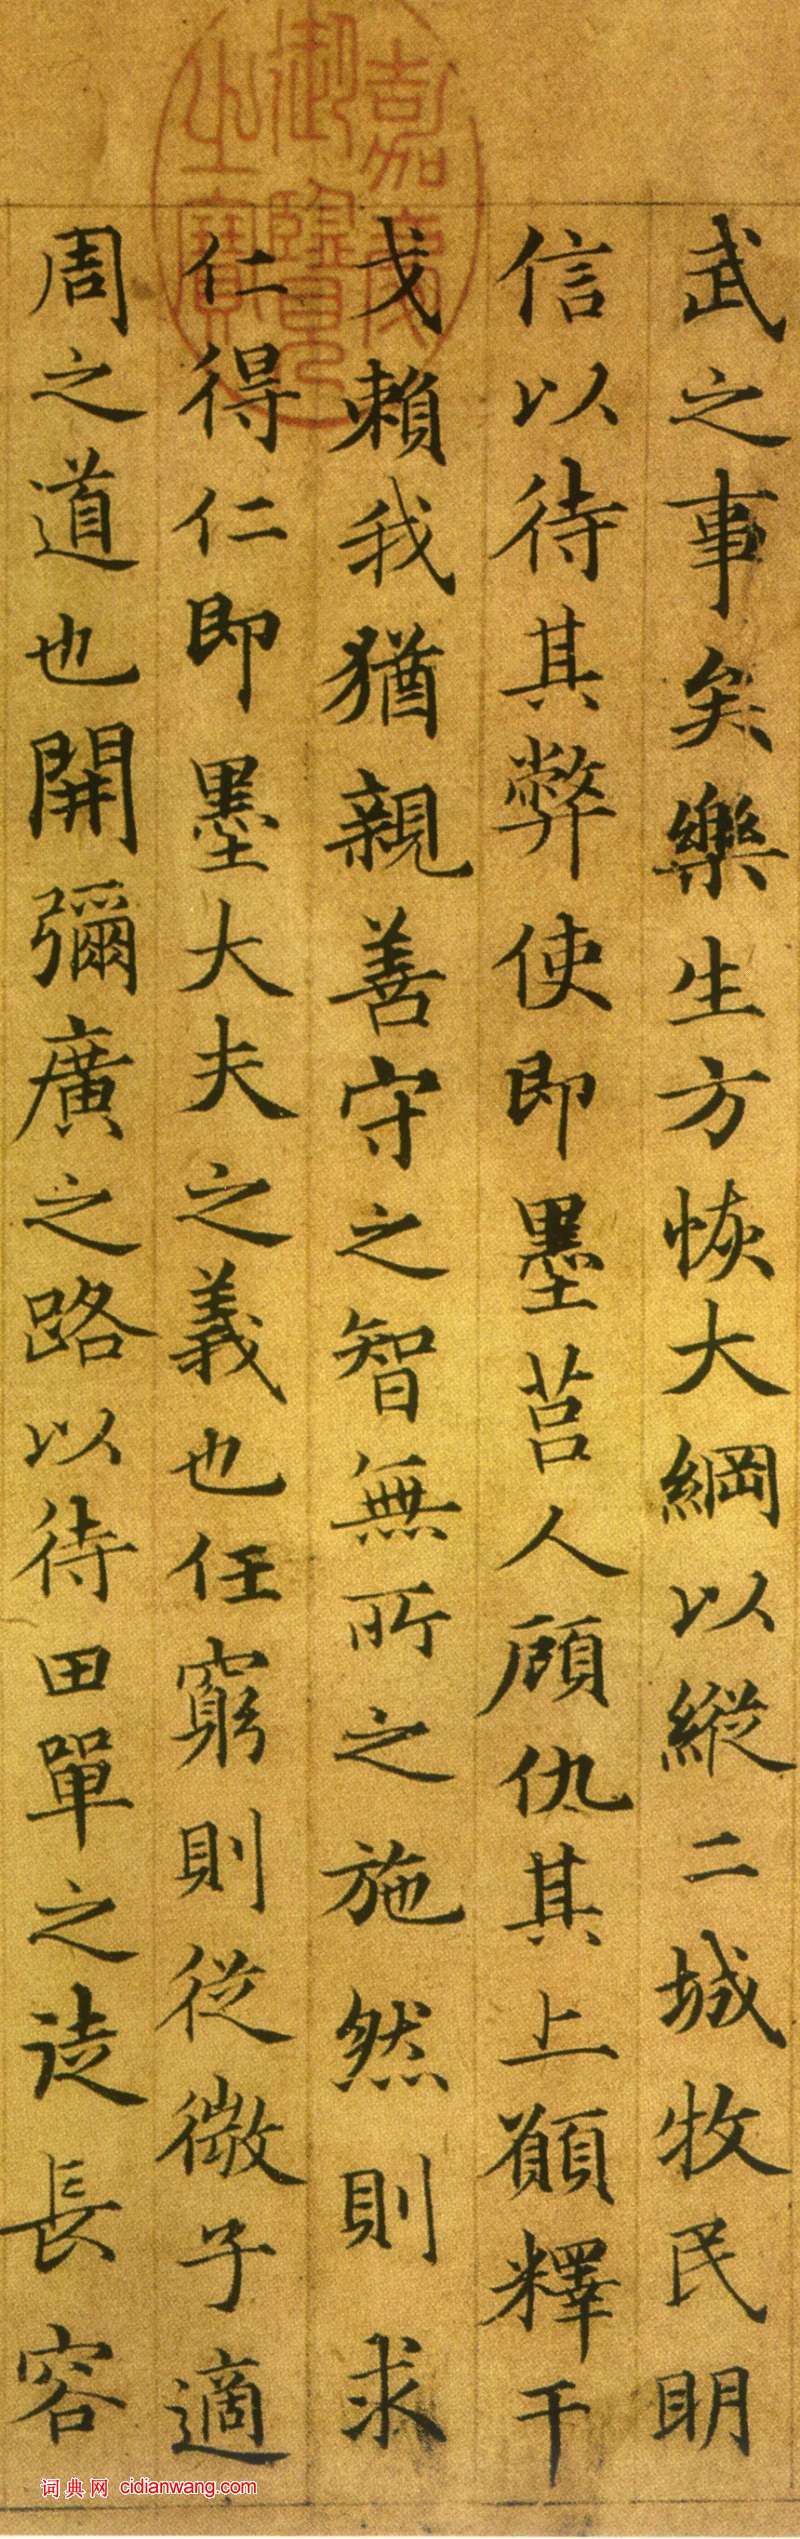 武之事矣樂生方恢大綱以縱二城牧民明
信以待其弊使即墨莒人顧仇其上願釋干
戈賴我猶親善守之智無所之施然則求
仁得仁即墨大夫之義也任窮則從微子適
周之道也開彌廣之路以待田單之徒長容
嘉慶
御覽
之寶
词典网 cidianwang.com